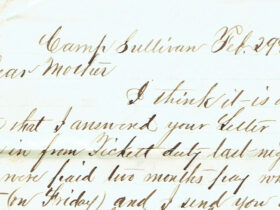 Camp Sullivan Feb. 29
ear Mother
I think it is
that I answered your Letter
in from Pickett duty last
were paid two months pay
(on Friday) and I send you